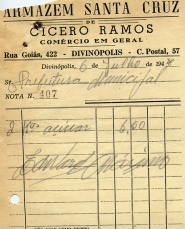 ARMAZEM SANTA CRUZ
DE
CICERO RAMOS
COMÉRCIO EM GERAL
Rua Goiás, 422 - DIVINÓPOLIS - C. Postal, 57
Divinópolis, 6 de Julho de 194
Sr. Prefeitura Municipal
NOTA N. 407
2 açucar 6,60